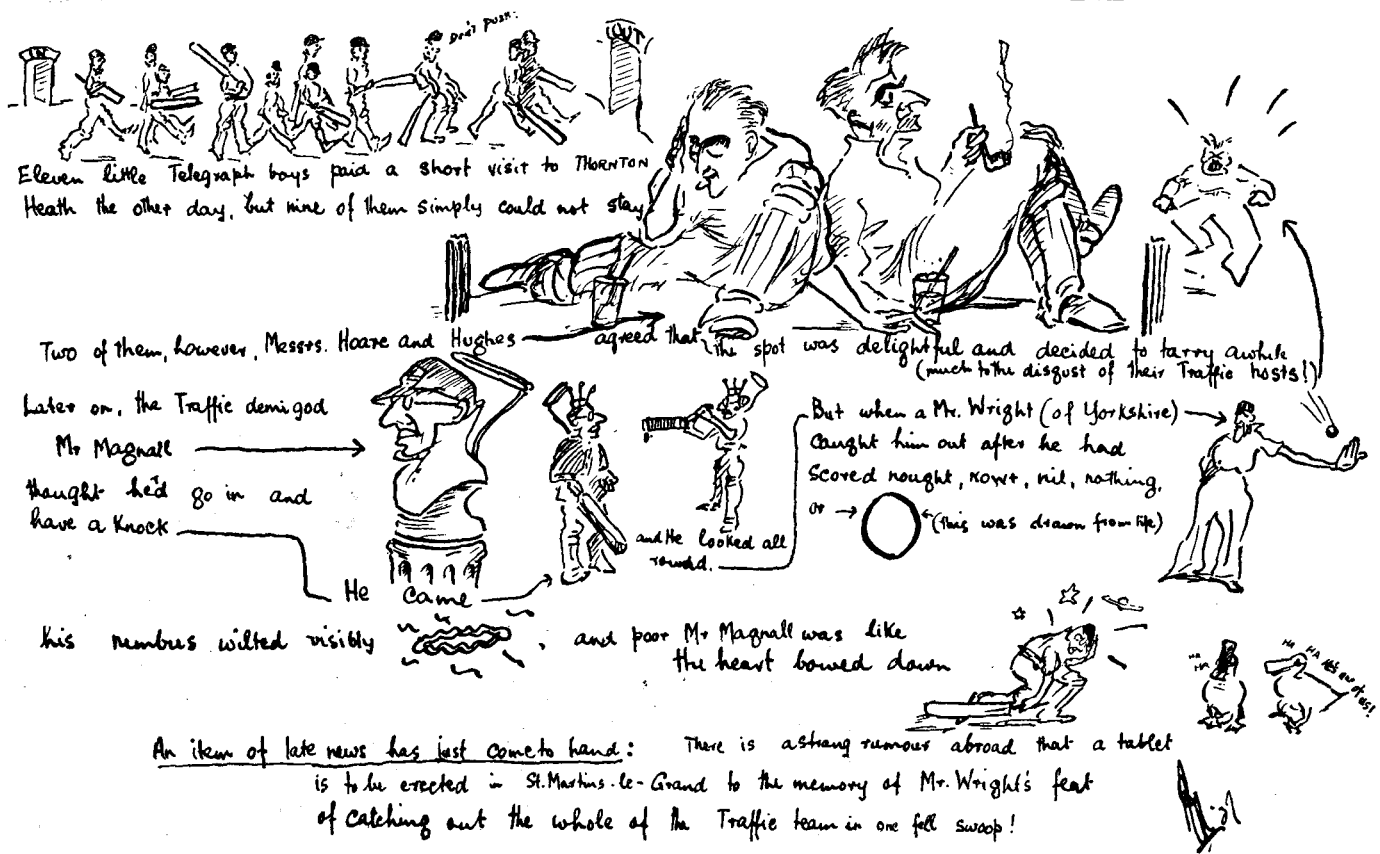 IN
Don't push!
OUT
Eleven little Telegraph boys paid a short visit to THORNTON
Heath the other day, but nine of them simply could not stay
Two of them, however, Messrs. Hoare and Hughes agreed that the spot was delightful and decided to tarry awhile
(much to the disgust of their Traffic hosts!)
Later on, the Traffic demigod
Mr Magnall
thought he'd go in and
have a knock
He came
and He looked all
round.
But when a Mr. Wright (of Yorkshire)
caught him out after he had
scored nought, nowt, nil, nothing,
or (this was drawn from life)
his nimbus wilted visibly , and poor Mr Magnall was like
the heart bowed down
HA
HA
HA
HA
An item of late news has just come to hand: There is a strang rumour abroad that a tablet
is to be erected in St. Martins-le-Grand to the memory of Mr. Wright's feat
of catching out the whole of the Traffic team in one fell swoop!